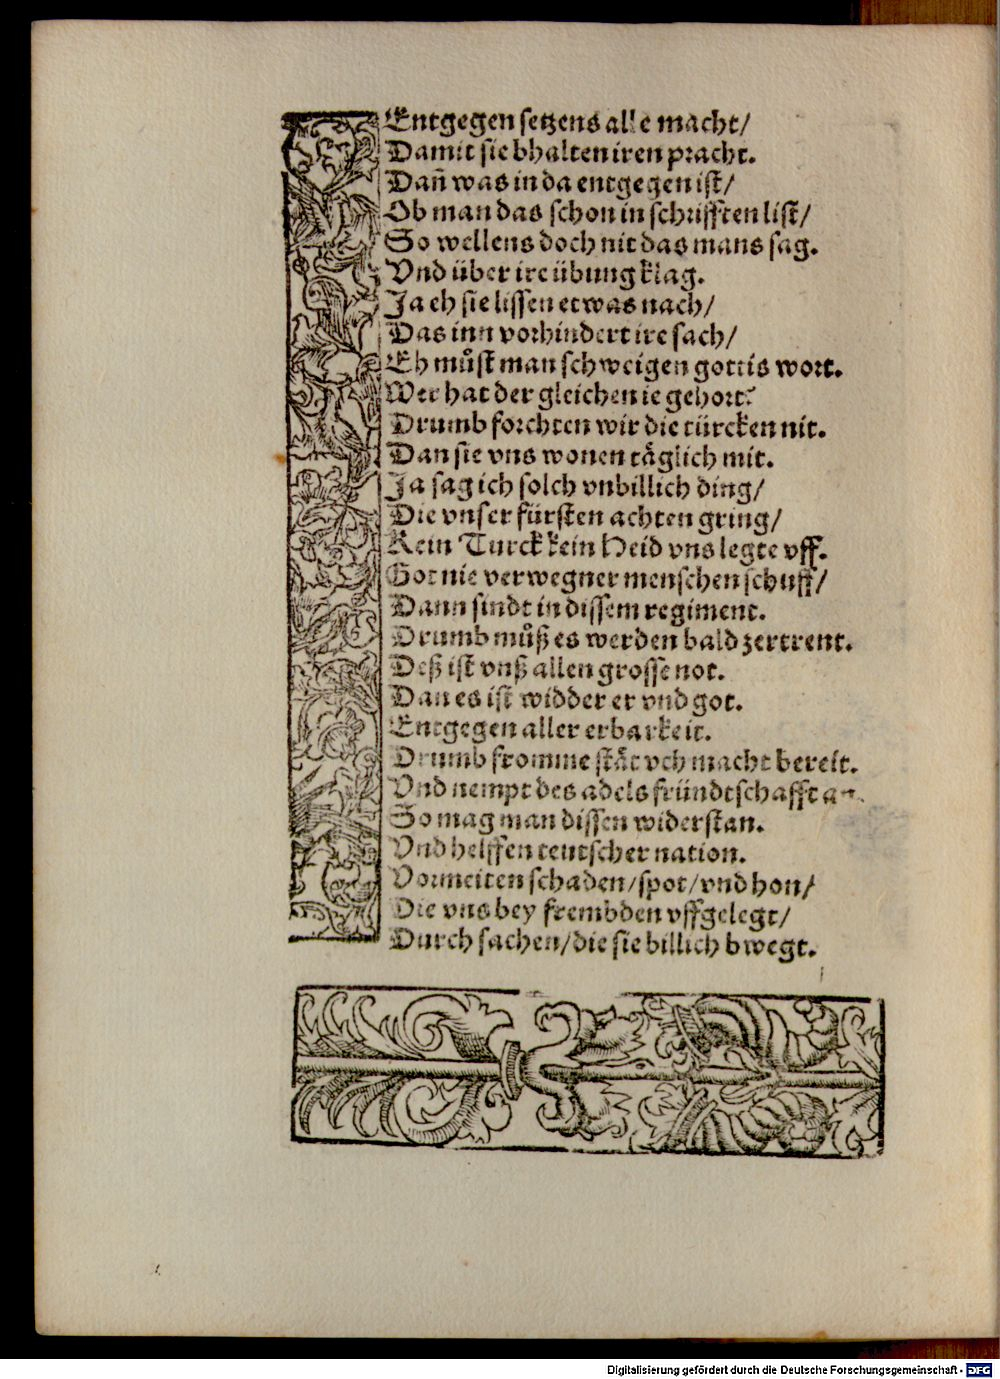 Entgegen setzens alle macht/
Damit sie bhalten iren pracht.
Dañ was in da entgegen ist/
Ob man das schon in schrifften list/
So wellens doch nit das mans sag.
Vnd über ire übung klag.
Ja eh sie lissen etwas nach/
Das inn vorhindert ire sach/
Eh můst man schweigen gottis wort.
Wer hat der gleichen ie gehort?
Drumb forchten wir die türcken nit.
Dan sie vns wonen täglich mit.
Ja sag ich solch vnbillich ding/
Die vnser fürsten achten gring/
Kein Turck kein Heid vns legte vff.
Got nie verwegner menschen schuff/
Dann sindt in dissem regiment.
Drumb můß es werden bald zertrent.
Deß ist vnß allen grosse not.
Dan es ist widder er vnd got.
Entgegen aller erbarkeit.
Drumb fromme stät vch macht bereit.
Vnd nempt des adels fründtschafft an.
So mag man dissen widerstan.
Vnd helffen teutscher nation.
Vormeiten schaden/spot/vnd hon/
Die vns bey frembden vffgelegt/
Durch sachen/die sie billich bwegt.
Digitalisierung gefördert durch die Deutsche Forschungsgemeinschaft - DFG